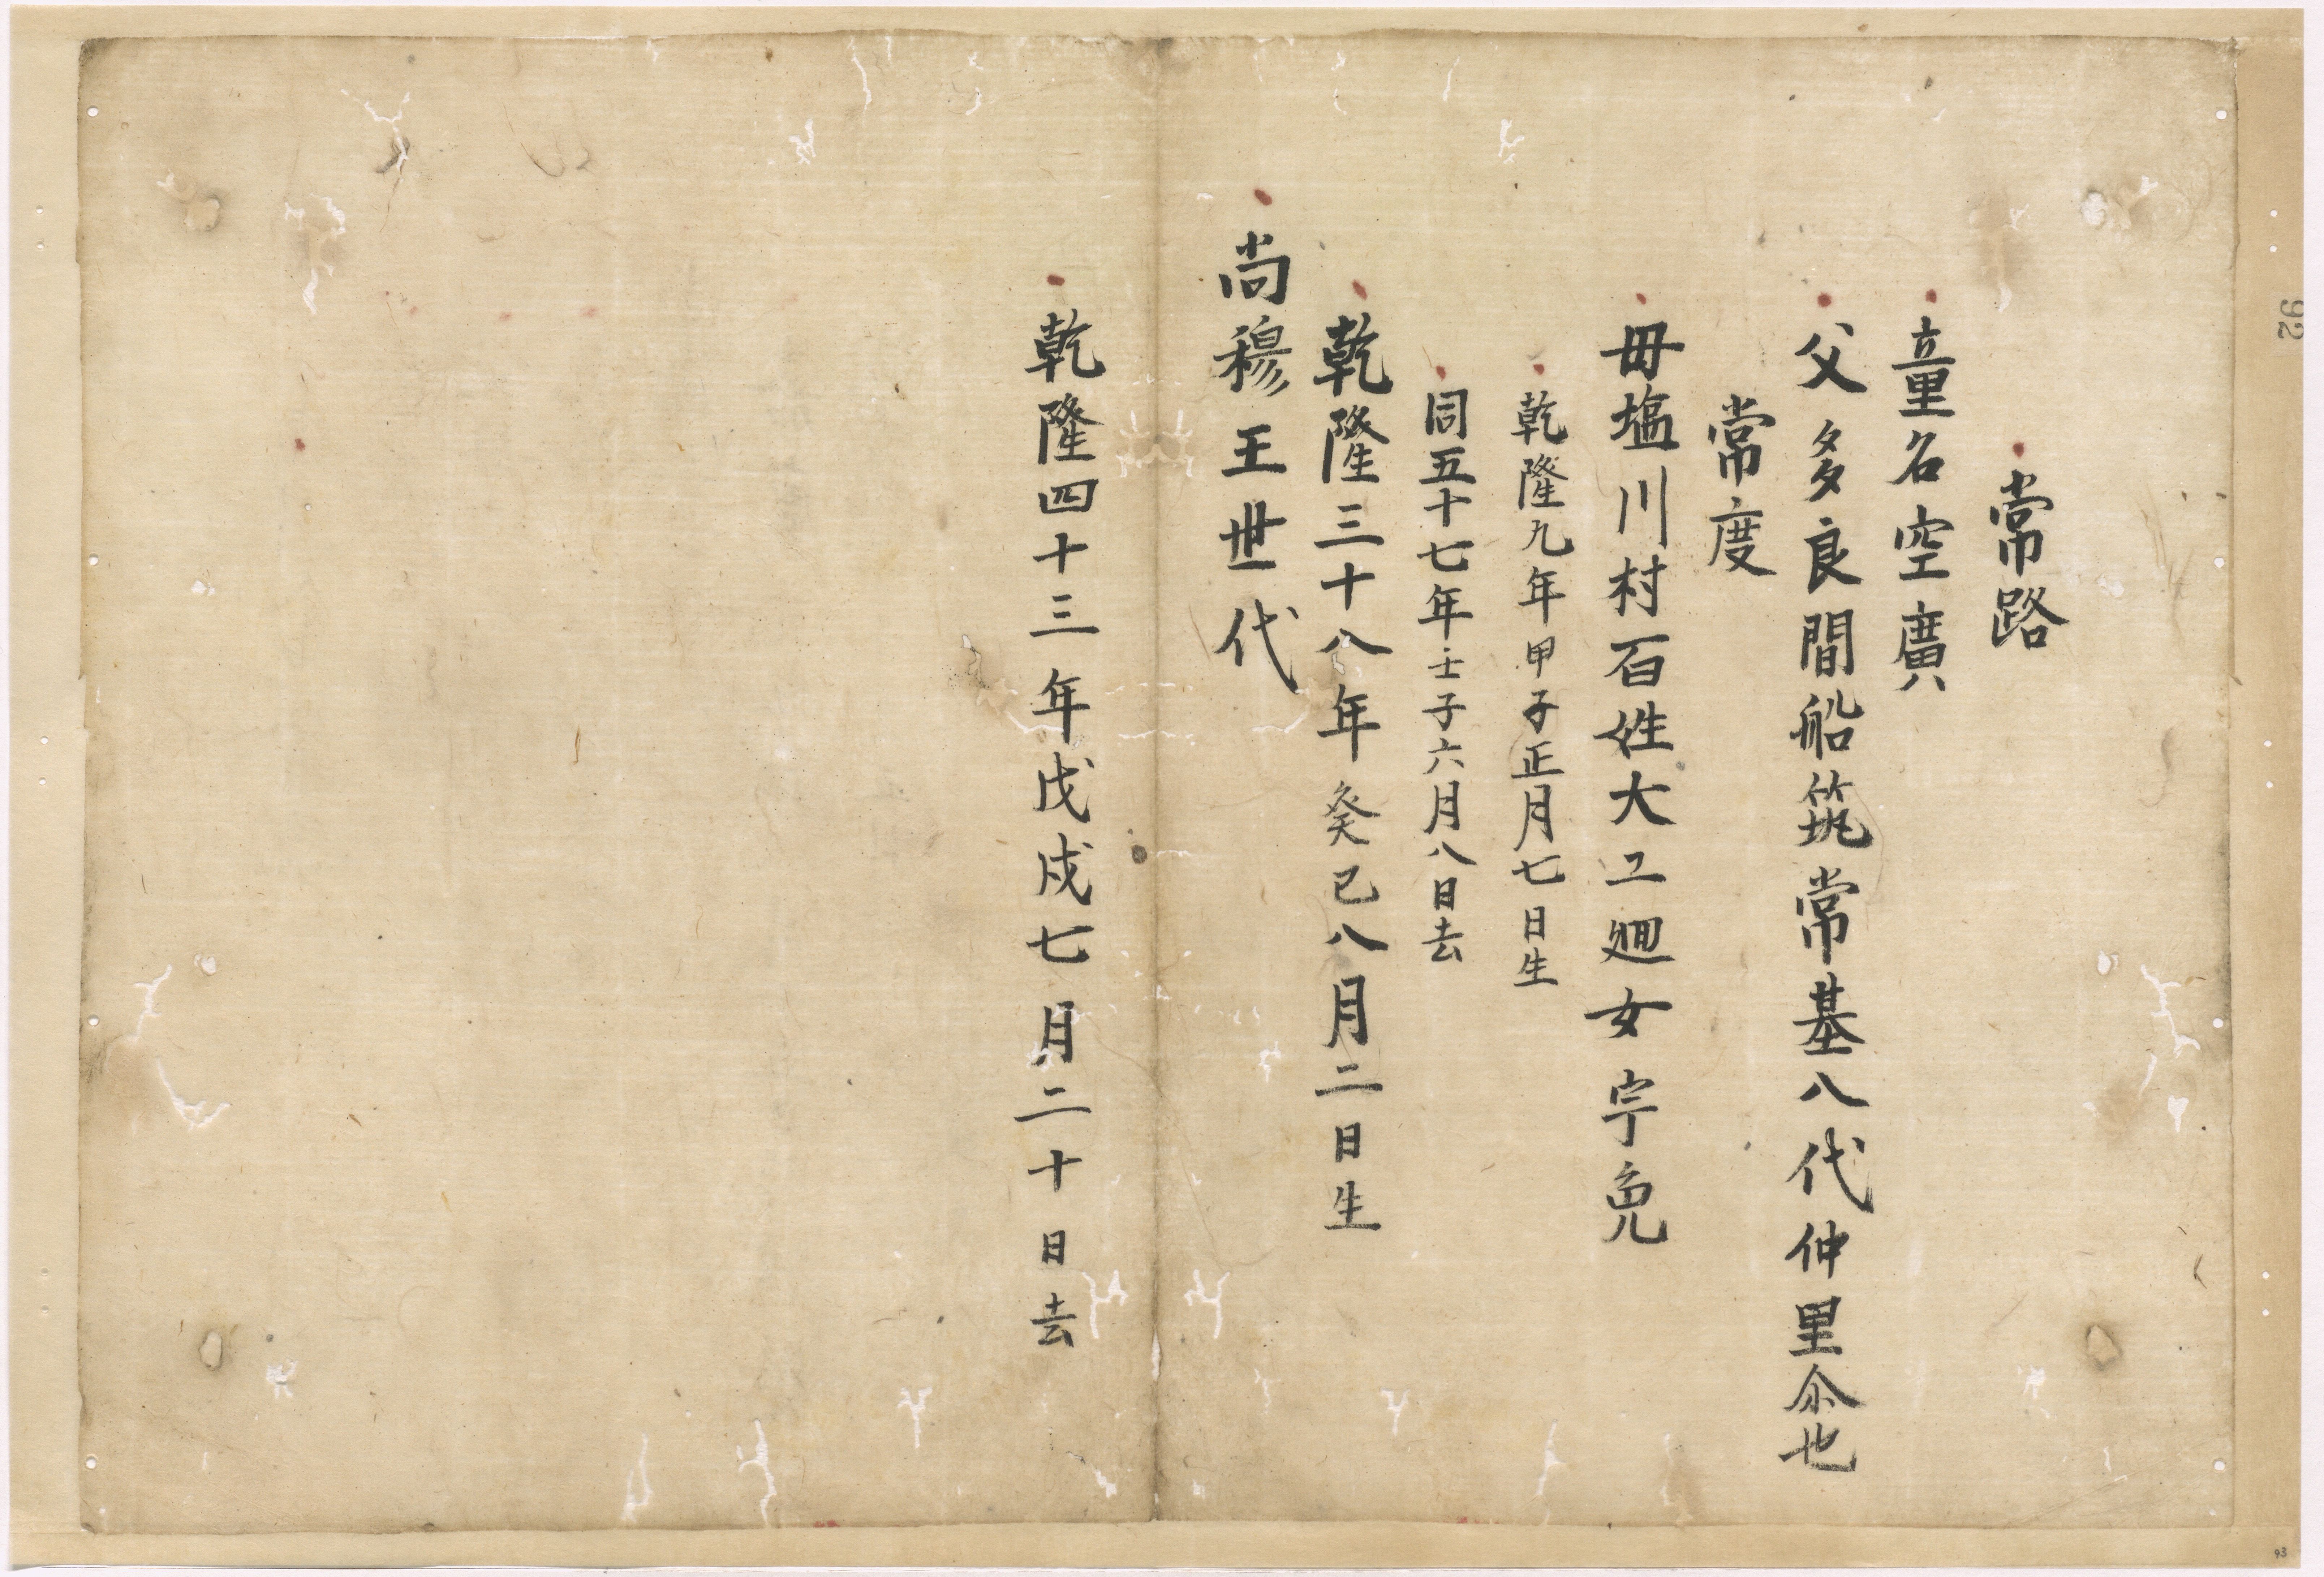 常路
童名空廣
父多良間船筑常基八代仲里尒也
常度
毋塩川村百姓大工廻女宇免
乾隆九年甲子正月七日生
同五十七年壬子六月八日去
乾隆三十八年癸巳八月二日生
尚穆王世代
乾隆四十三年戊戌七月二十日去
92
93